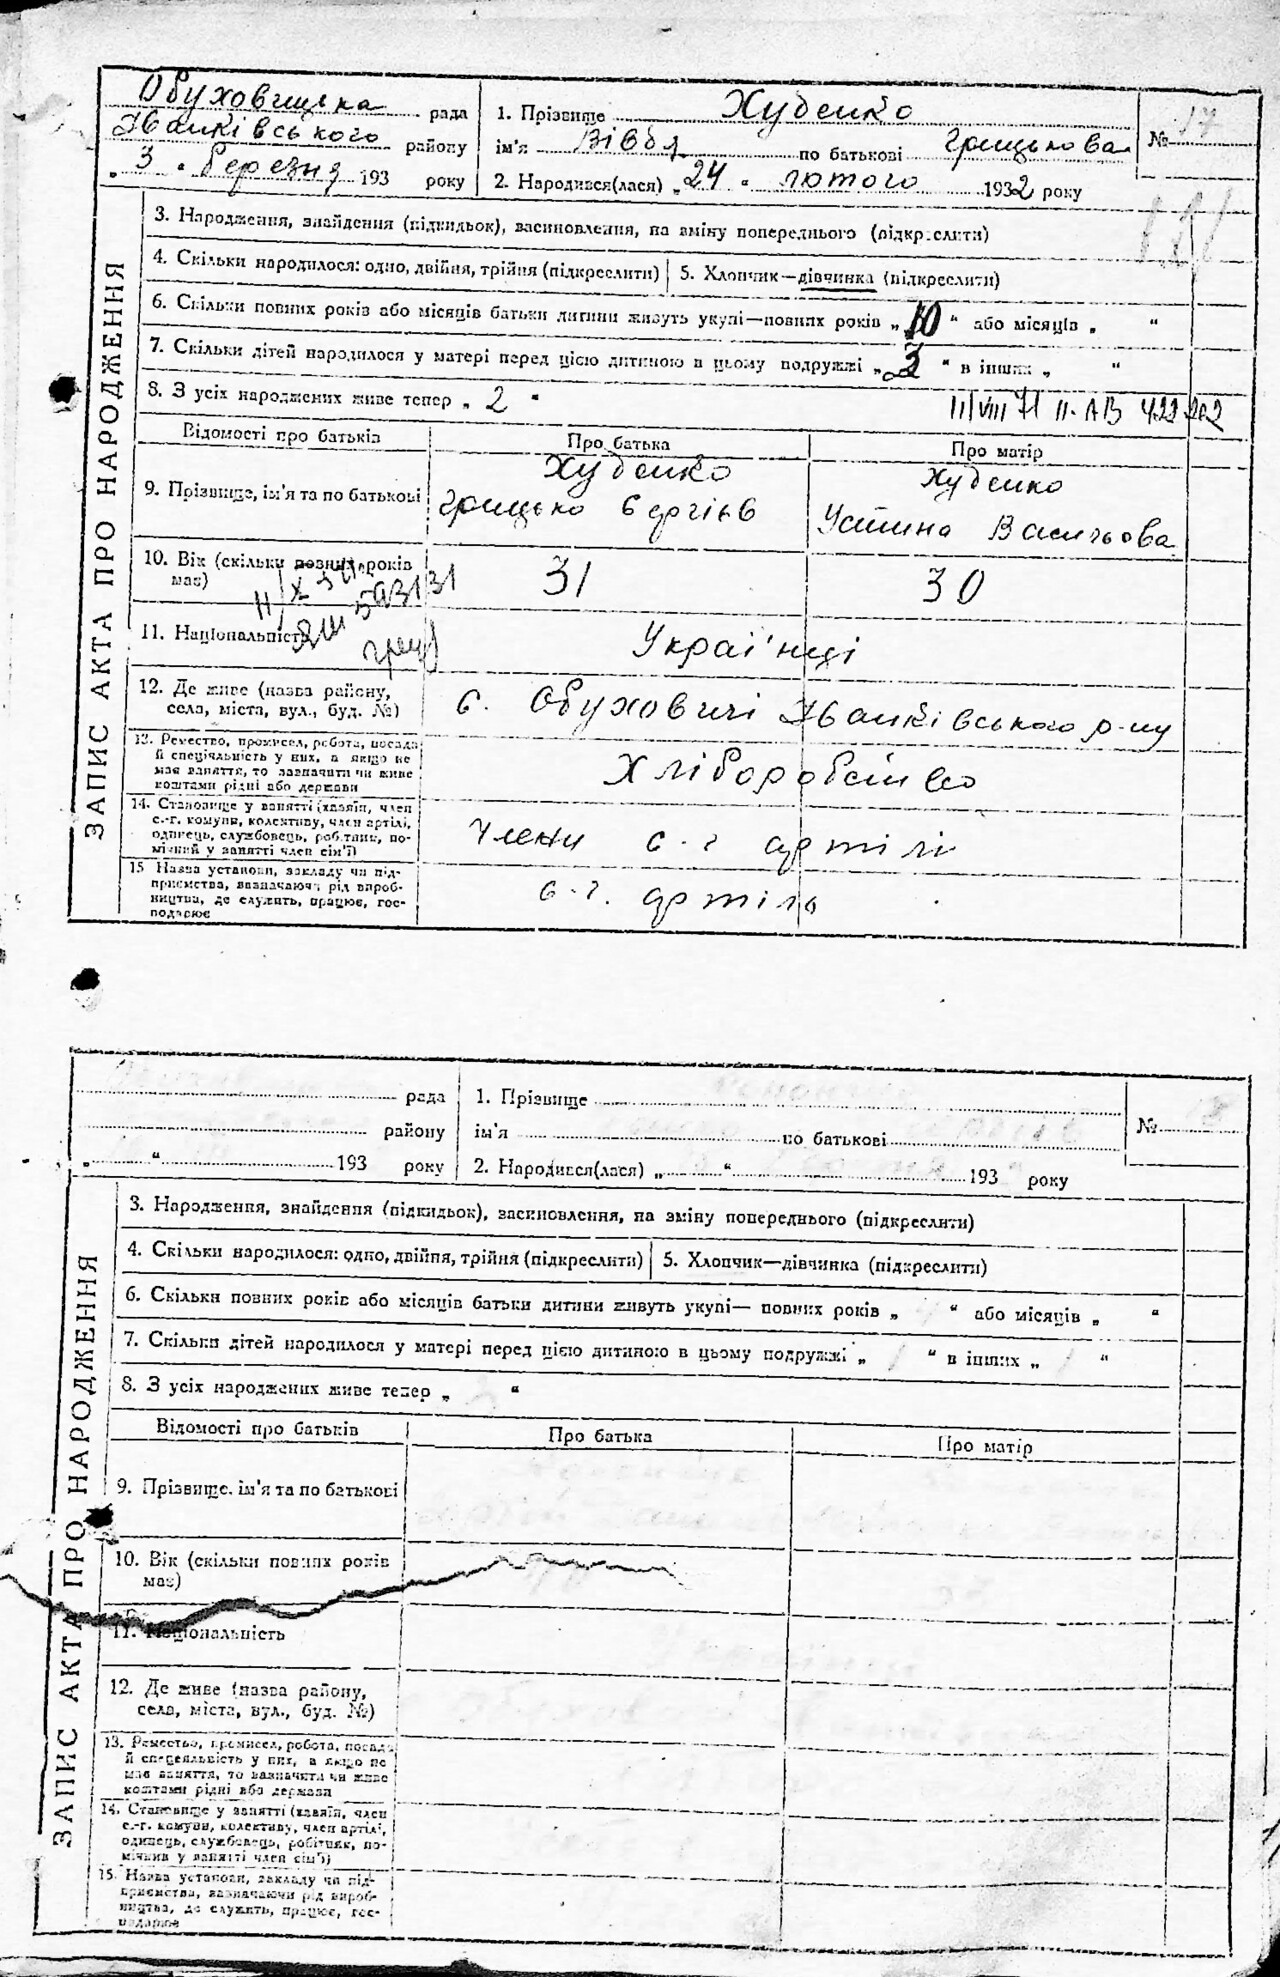 Обуховицька рада
Іванківського району
„ 3 " березня 193 року
1. Прізвище Худенко
ім'я Вівдя по батькові Грицькова
2. Народився(лася) „ 24 " лютого 1932 року
№ 17
ЗАПИС АКТА ПРО НАРОДЖЕННЯ
3. Народження, знайдення (підкидьок), васиновлення, на зміну попереднього (підкреслити)
4. Скільки народилося: одно, двійня, трійня (підкреслити) 5. Хлопчик—дівчинка (підкреслити)
6. Скільки повних років або місяців батьки дитини живуть укупі—повних років „ 10 " або місяців „ "
7. Скільки дітей народилося у матері перед цією дитиною в цьому подружжі „ 3 " в інших „ "
8. З усіх народжених живе тепер „ 2 "
Відомості про батьків Про батька Про матір
9. Прізвище, ім'я та по батькові
Худенко
Грицько Сергіїв
Худенко
Устина Васильова
10. Вік (скільки повних років
має)
31 30
11. Національність Украї'нці
12. Де живе (назва району,
села, міста, вул., буд. №)
с. Обуховичі Іванківського р-ну
13. Ремество, промисел, робота, посада
й спеціяльність у них, а якщо не
має заняття, то зазначити чи живе
коштами рідні або держави
Хліборобство
14. Становище у занятті (хазяїн, член
с.-г. комуни, колективу, член артілі,
одинець, службовець, робітник, по-
мічний у занятті член сім'ї)
Члени с-г артілі
15 Назва установи, закладу чи під-
приємства, зазначаючи рід вироб-
ництва, де служить, працює, гос-
подарює
с-г. артіль
рада
району
„ " 193 року
1. Прізвище
ім'я по батькові
2. Народився(лася) „ " 193 року
№
ЗАПИС АКТА ПРО НАРОДЖЕННЯ
3. Народження, знайдення (підкидьок), васиновлення, на зміну попереднього (підкреслити)
4. Скільки народилося: одно, двійня, трійня (підкреслити) 5. Хлопчик—дівчинка (підкреслити)
6. Скільки повних років або місяців батьки дитини живуть укупі— повних років „ " або місяців „ "
7. Скільки дітей народилося у матері перед цією дитиною в цьому подружжі „ " в інших „ "
8. З усіх народжених живе тепер „ "
Відомості про батьків Про батька Про матір
9. Прізвище, ім'я та по батькові
10. Вік (скільки повних років
має)
11. Національність
12. Де живе (назва району,
села, міста, вул., буд. №)
13. Ремество, промисел, робота, посада
й спеціяльність у них, а якщо не
має заняття, то зазначити чи живе
коштами рідні або держави
14. Становище у занятті (хазяїн, член
с.-г. комуни, колективу, член артілі,
одинець, службовець, робітник, по-
мічний у занятті член сім'ї)
15. Назва установи, закладу чи під-
приємства, зазначаючи рід вироб-
ництва, де служить, працює, гос-
подарює